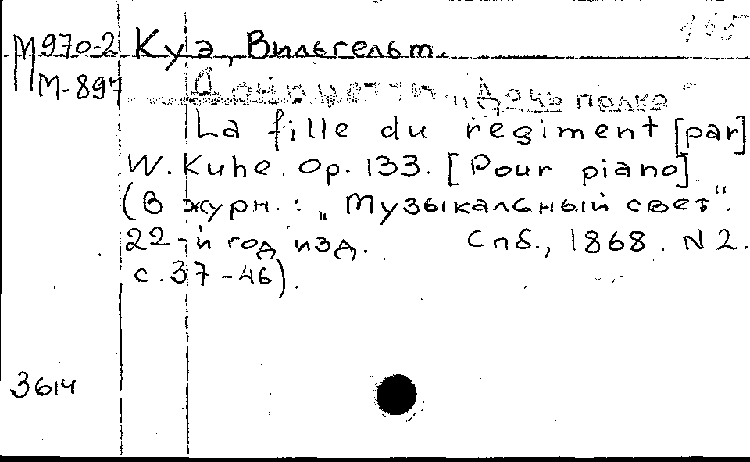 М970-2 Куэ, Вильгельм.
М-897 Доницетти "Дочь полка"
La fille du regiment [par]
W. Kuhe. Op. 133. [Pour piano]
(В журн.: „Музыкальный свет".
22-й год изд. Спб., 1868. N 2.
с. 37-46).
3614